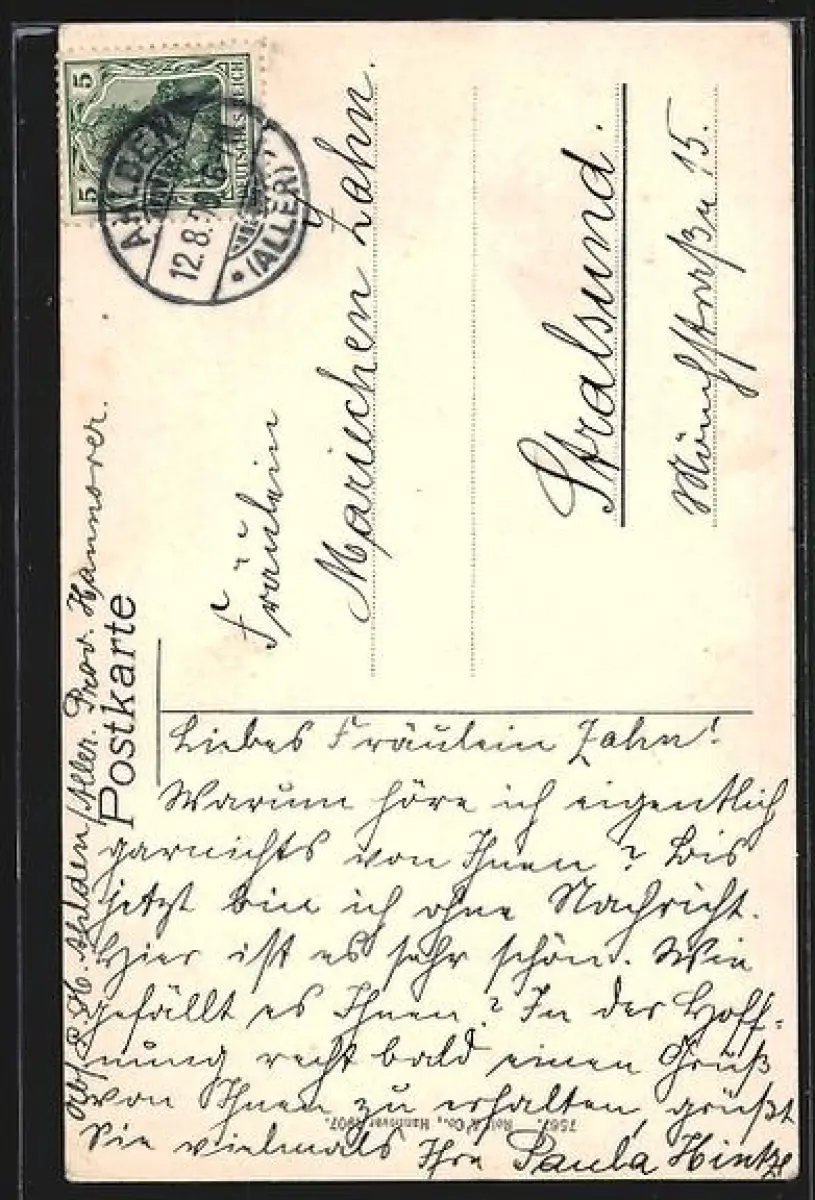 5
5
DEUTSCHES REICH
AHLDEN
12.8.
(ALLER)
Postkarte
Fräulein
Mariechen Zahn.
Stralsund.
Mönchstraße 15.
Ahlden/Aller. Prov. Hannover.
Liebes Fräulein Zahn!
Warum höre ich eigentlich
garnichts von Ihnen? Bis
jetzt bin ich ohne Nachricht.
Hier ist es sehr schön. Wie
gefällt es Ihnen? In der Hoff-
nung recht bald einen Gruß
von Ihnen zu erhalten, grüßt
Sie vielmals Ihre Paula Hintze
& Co., Hannover 1907.